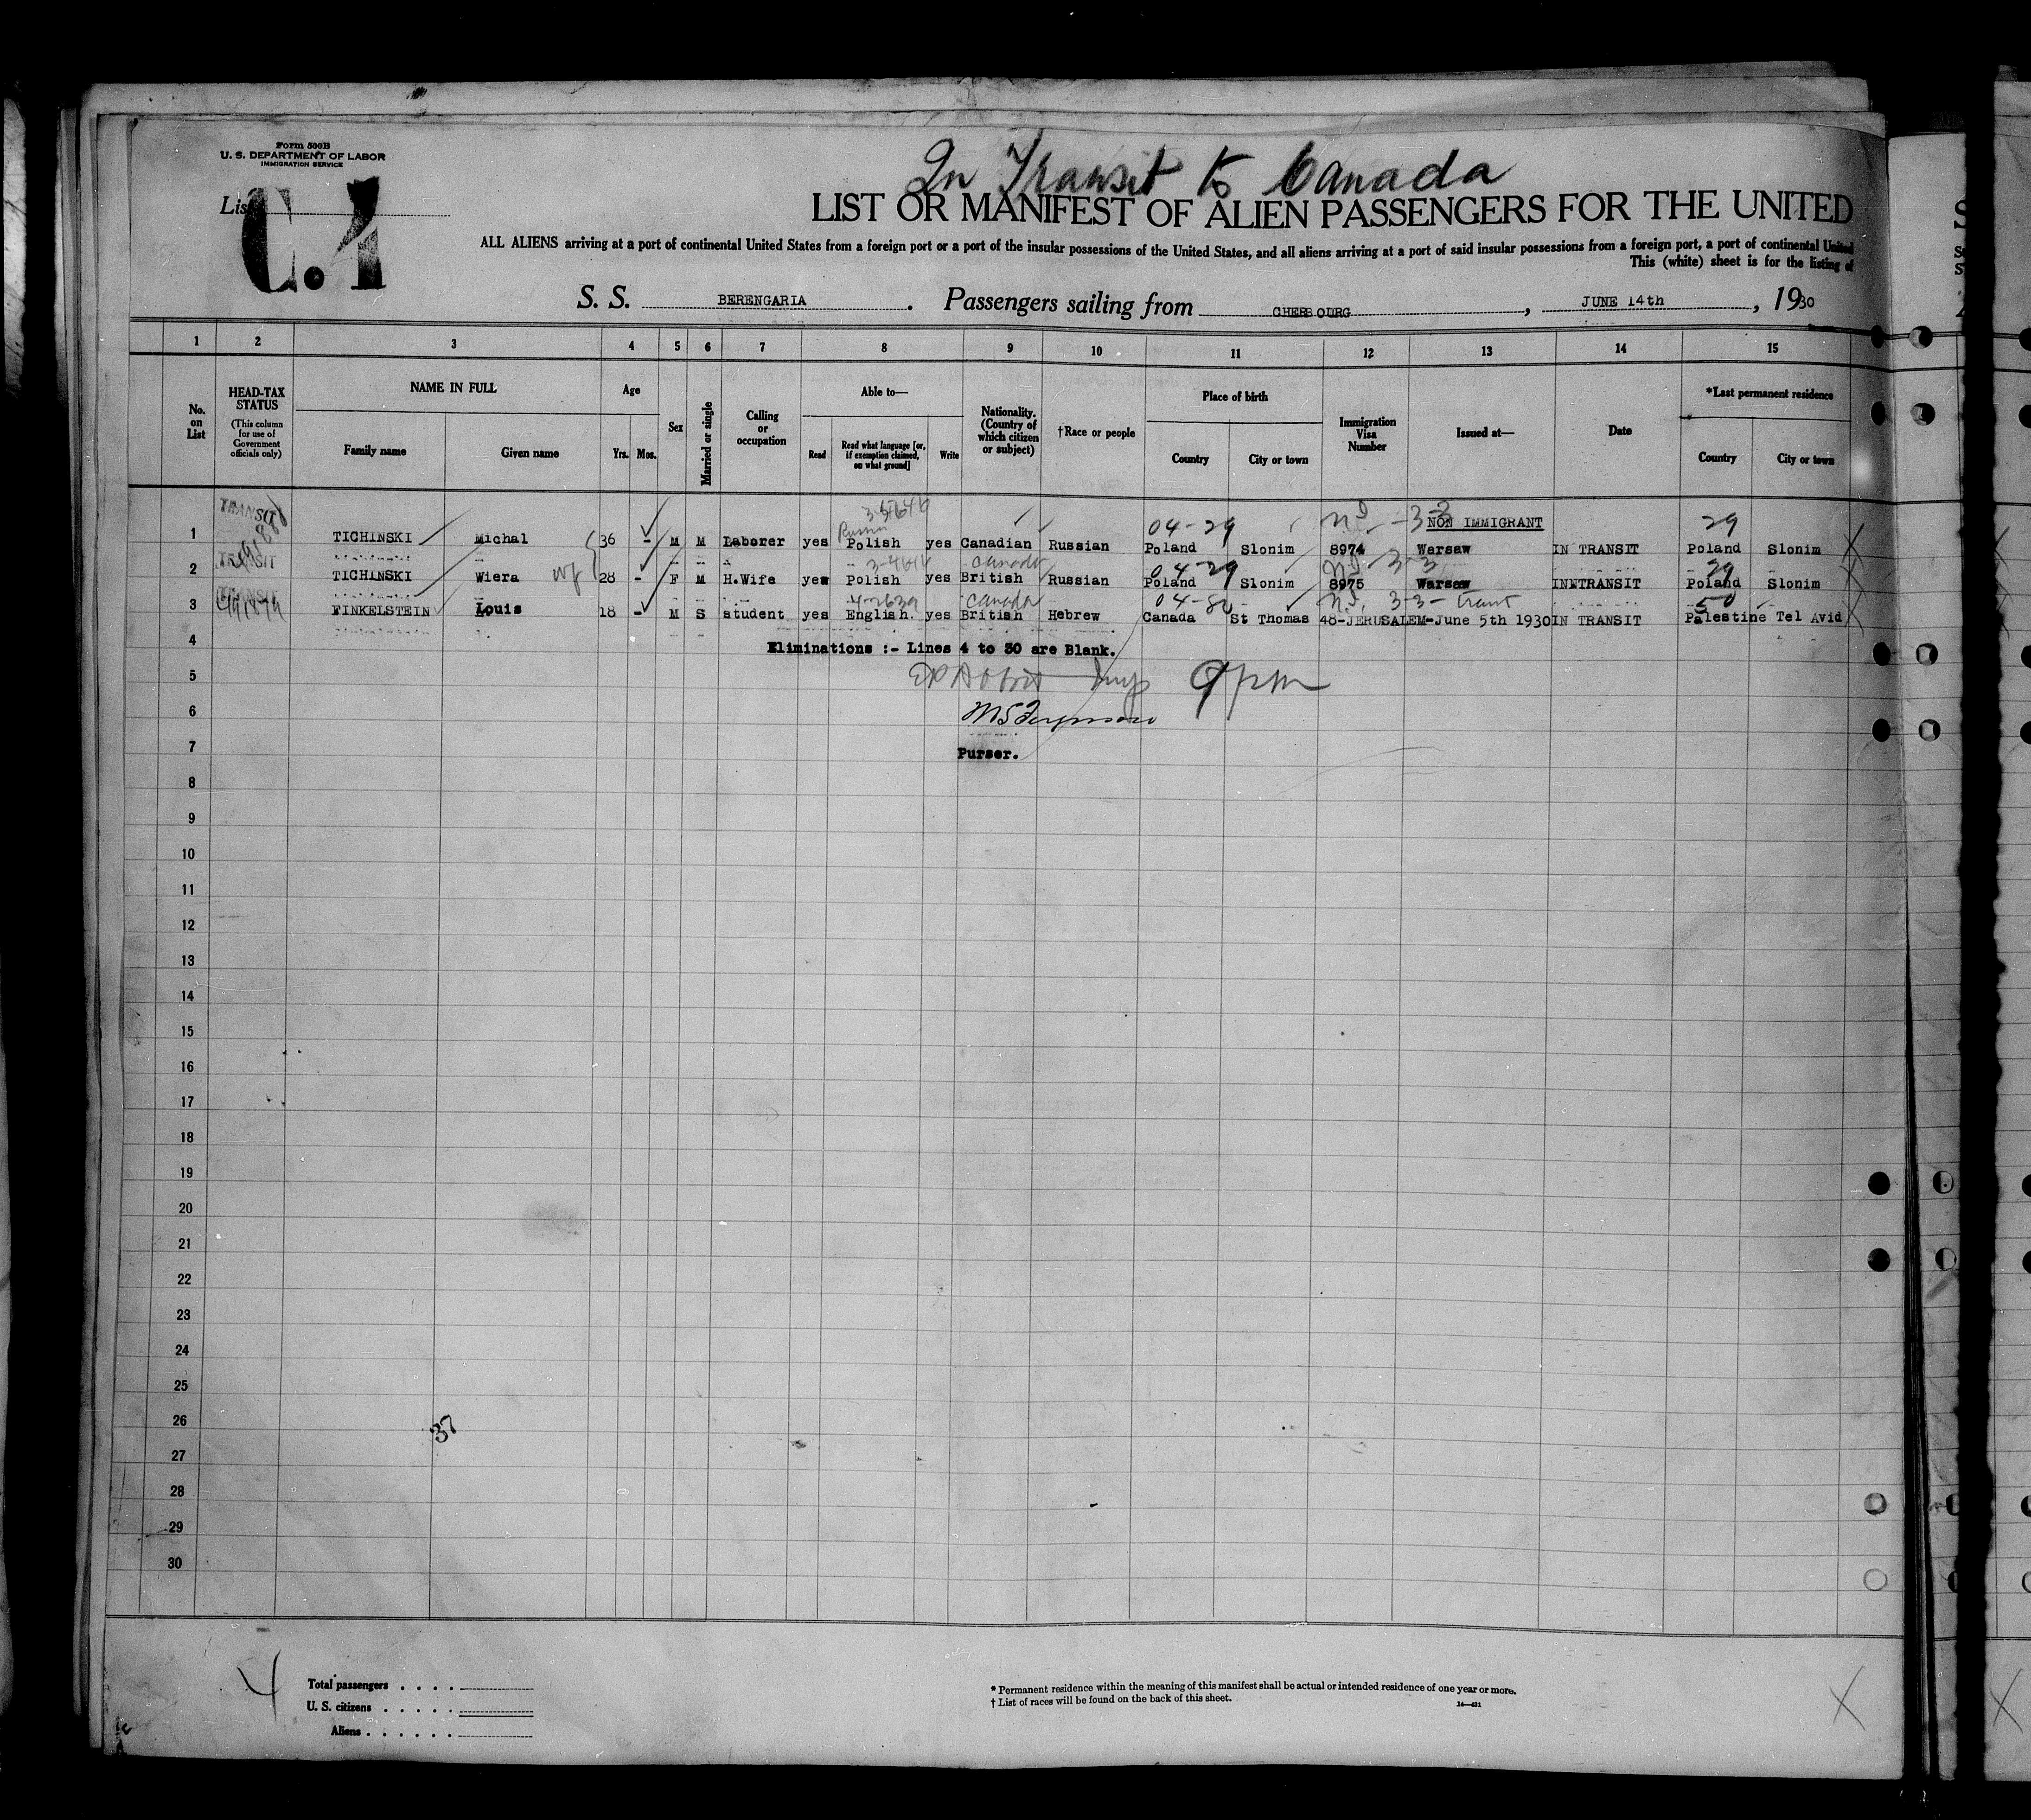 Form 500B
U. S. DEPARTMENT OF LABOR
IMMIGRATION SERVICE
In Transit to Canada
List C.4
LIST OR MANIFEST OF ALIEN PASSENGERS FOR THE UNITED
ALL ALIENS arriving at a port of continental United States from a foreign port or a port of the insular possessions of the United States, and all aliens arriving at a port of said insular possessions from a foreign port, a port of continental United
This (white) sheet is for the listing of
S. S. BERENGARIA. Passengers sailing from CHERBOURG, JUNE 14th, 1930
1 2 3 4 5 6 7 8 9 10 11 12 13 14 15
No. on List
HEAD-TAX STATUS
(This column for use of Government officials only)
NAME IN FULL
Family name Given name
Age
Yrs. Mos.
Sex
Married or single
Calling or occupation
Able to—
Read Read what language [or, if exemption claimed, on what ground] Write
Nationality. (Country of which citizen or subject)
†Race or people
Place of birth
Country City or town
Immigration Visa Number
Issued at—
Date
*Last permanent residence
Country City or town
TRANSIT 04-29 3-3 NON IMMIGRANT 29
1 TICHINSKI Michal 36 - M M Laborer yes Polish yes Canadian Russian Poland Slonim 8974 Warsaw IN TRANSIT Poland Slonim
TRANSIT Canada 04-29 3-3 29
2 TICHINSKI Wiera wf 28 - F M H.Wife yes Polish yes British Russian Poland Slonim 8975 Warsaw IN TRANSIT Poland Slonim
Canada 3-3- 50
3 FINKELSTEIN Louis 18 - M S student yes English. yes British Hebrew Canada St Thomas 48-JERUSALEM-June 5th 1930 IN TRANSIT Palestine Tel Avid
4 Eliminations :- Lines 4 to 30 are Blank.
5 9 pm
6
7 Purser.
8
9
10
11
12
13
14
15
16
17
18
19
20
21
22
23
24
25
26 37
27
28
29
30
4
Total passengers
U. S. citizens
Aliens
* Permanent residence within the meaning of this manifest shall be actual or intended residence of one year or more.
† List of races will be found on the back of this sheet.
X